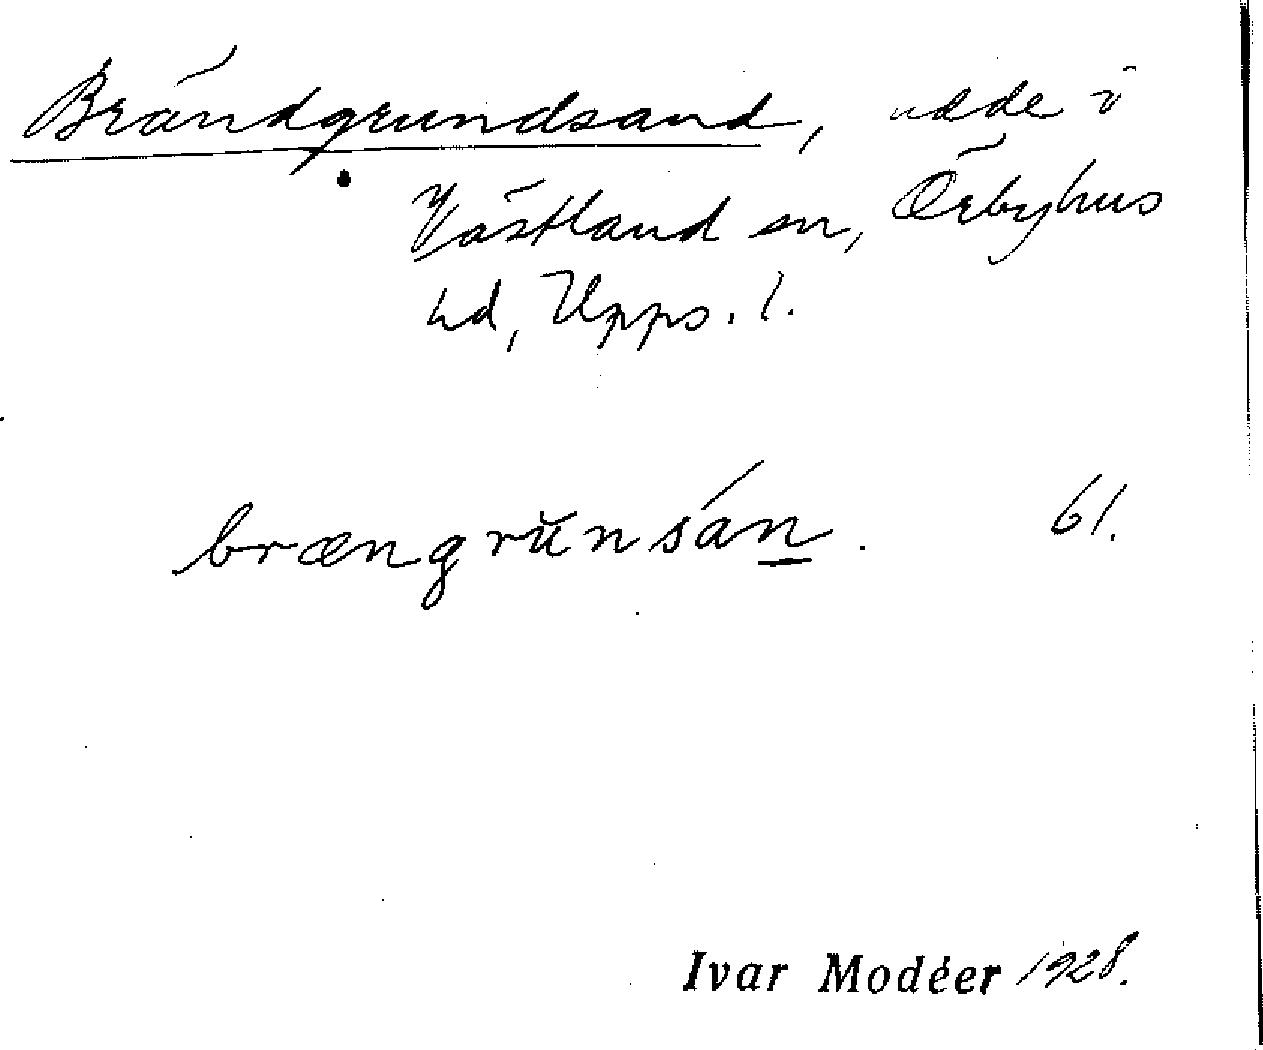 Brändgrundsand, udde i
Västland sn, Örbyhus
hd, Upps. l.
brængrŭnsán. 61.
Ivar Modéer 1928.